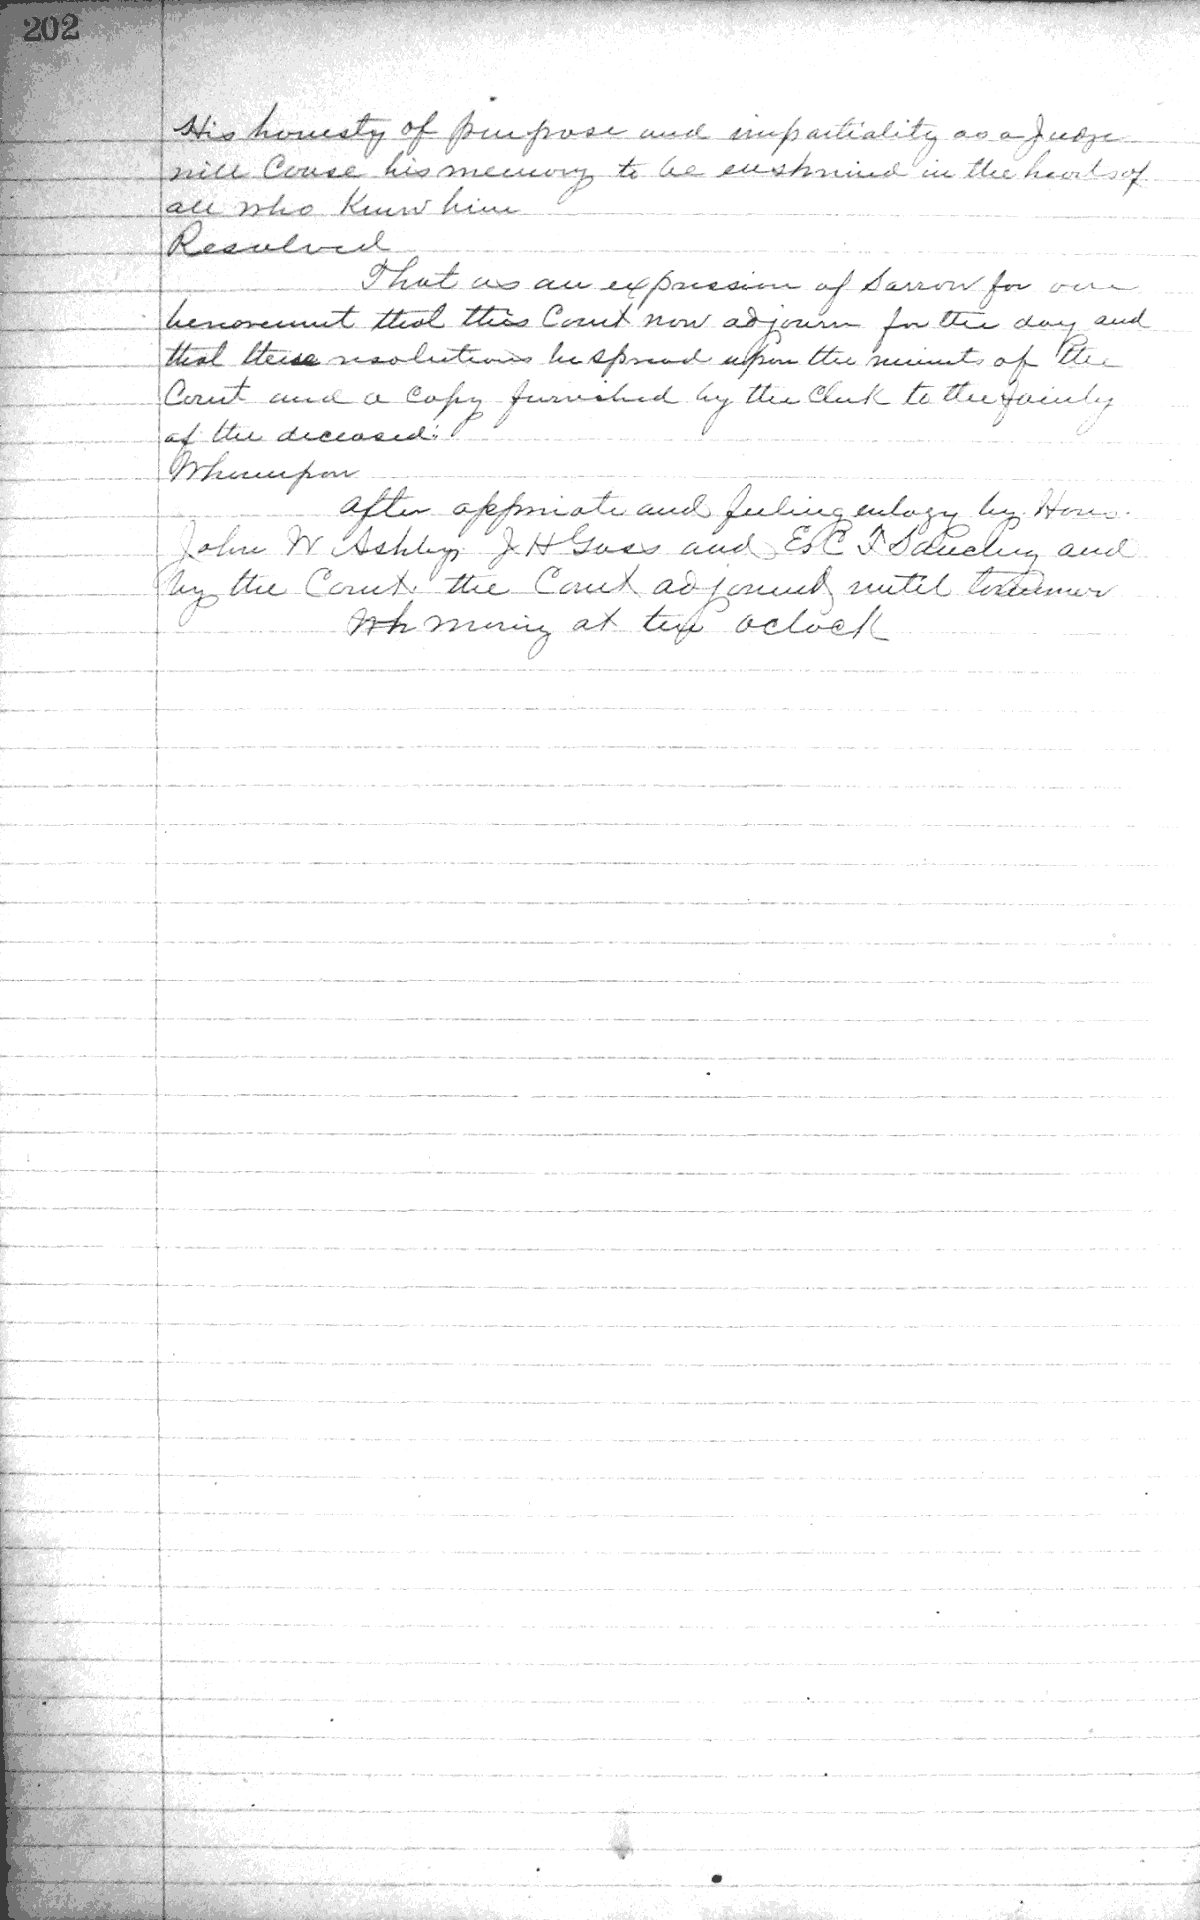 202
His honesty of purpose and impartiality as a Judge
will Couse his memory to be enshrined in the hearts of
all who Knew him
Resolved
That as an expression of Sorrow for our
bereavement that this Court now adjourn for the day and
that these resolutions be spread upon the minuts of the
Court and a Copy furnished by the Clerk to the family
of the deceased.
Whereupon
after and feeling eulogy by Hons.
John W Ashby J H Goss and and
by the Court. the Court adjourned until tomorrow
morning at ten oclock